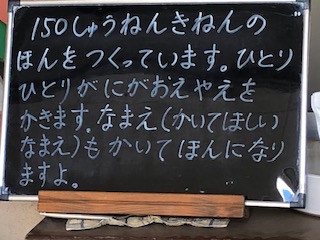 150しゅうねんきねんの
ほんをつくっています。ひとり
ひとりがにがおえやえを
かきます。なまえ(かいてほしい
なまえ)もかいてほんになり
ますよ。